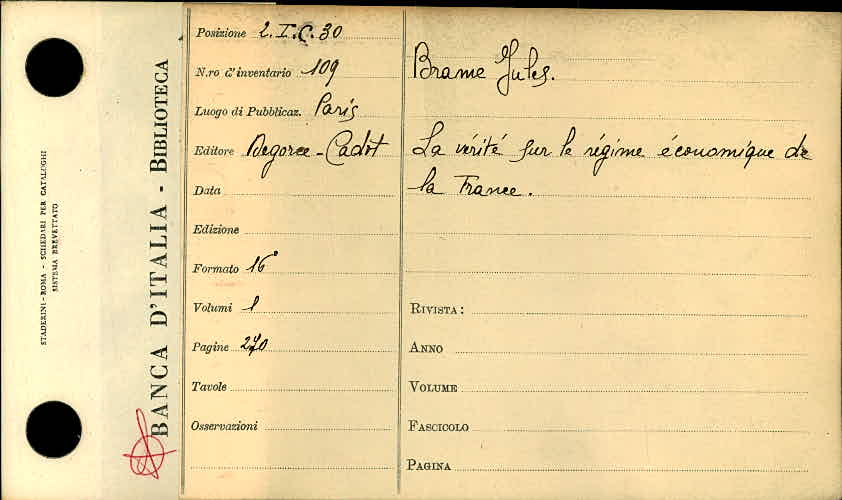 STADERINI - ROMA - SCHEDARI PER CATALOGHI
SISTEMA BREVETTATO
BANCA D'ITALIA - BIBLIOTECA
Posizione 2.I.C.30
N.ro d'inventario 109
Luogo di Pubblicaz. Paris
Editore Degorce-Cadot
Data
Edizione
Formato 16°
Volumi 1
Pagine 270
Tavole
Osservazioni
Brame Jules.
La vérité sur le régime économique de
la France.
RIVISTA:
ANNO
VOLUME
FASCICOLO
PAGINA